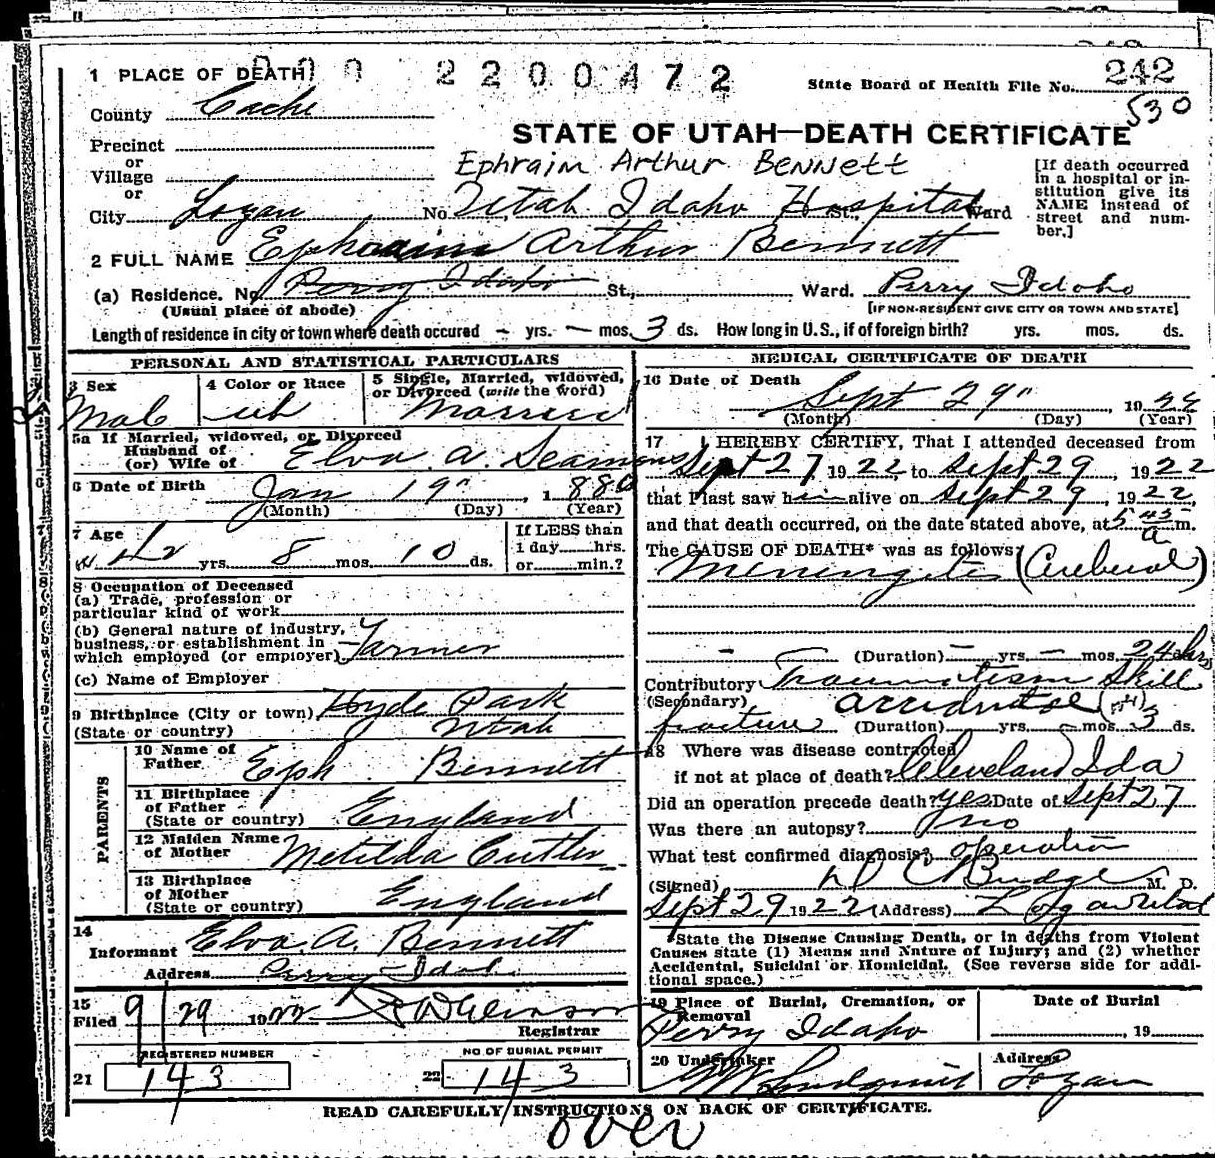 1 PLACE OF DEATH
2200472
State Board of Health File No. 242
530
County Cache
STATE OF UTAH—DEATH CERTIFICATE
Precinct
or
Village
or
Ephraim Arthur Bennett
[If death occurred in a hospital or institution give its NAME instead of street and number.]
City Logan No. Utah Idaho Hospital St., Ward
2 FULL NAME Ephraim Arthur Bennett
(a) Residence. No. Perry Idaho St., Ward. Perry Idaho
(Usual place of abode) [IF NON-RESIDENT GIVE CITY OR TOWN AND STATE]
Length of residence in city or town where death occured – yrs. – mos. 3 ds. How long in U.S., if of foreign birth? yrs. mos. ds.
PERSONAL AND STATISTICAL PARTICULARS
3 Sex
Male
4 Color or Race
wh
5 Single, Married, widowed, or Divorced (write the word)
Married
5a If Married, widowed, or Divorced
Husband of
(or) Wife of Elva A. Seamons
6 Date of Birth Jan 19" , 1880
(Month) (Day) (Year)
7 Age
42 yrs. 8 mos. 10 ds.
If LESS than
1 day hrs.
or min.?
8 Occupation of Deceased
(a) Trade, profession or
particular kind of work
(b) General nature of industry,
business, or establishment in
which employed (or employer) Farmer
(c) Name of Employer
9 Birthplace (City or town) Hyde Park
(State or country) Utah
PARENTS
10 Name of
Father Eph. Bennett
11 Birthplace
of Father
(State or country) England
12 Maiden Name
of Mother Metilda Cutler
13 Birthplace
of Mother
(State or country) England
14
Informant Elva A. Bennett
Address Perry – Idah.
15
Filed 9/29 1922
Registrar
REGISTERED NUMBER
21 143
NO. OF BURIAL PERMIT
22 143
MEDICAL CERTIFICATE OF DEATH
16 Date of Death
Sept 29" , 1922
(Month) (Day) (Year)
17 I HEREBY CERTIFY, That I attended deceased from
Sept 27, 1922, to Sept 29, 1922
that I last saw him alive on Sept 29, 1922,
and that death occurred, on the date stated above, at 5 45 a m.
The CAUSE OF DEATH* was as follows:
Meningitis (Cerebral)
– (Duration) – yrs. – mos. 24 hrs
Contributory Traumatism Skill
(Secondary) accidental
fracture (Duration) yrs. mos. 3 ds.
18 Where was disease contracted
if not at place of death? Cleveland Ida
Did an operation precede death? yes Date of Sept 27
Was there an autopsy? no
What test confirmed diagnosis? operation
(Signed) D C Budge M. D.
Sept 29 1922 (Address) Logan Utah
*State the Disease Causing Death, or in deaths from Violent
Causes state (1) Means and Nature of Injury; and (2) whether
Accidental, Suicidal or Homicidal. (See reverse side for addi-
tional space.)
19 Place of Burial, Cremation, or
Removal
Perry Idaho
Date of Burial
, 19
20 Undertaker
Lindquist
Address
Logan
READ CAREFULLY INSTRUCTIONS ON BACK OF CERTIFICATE.
over